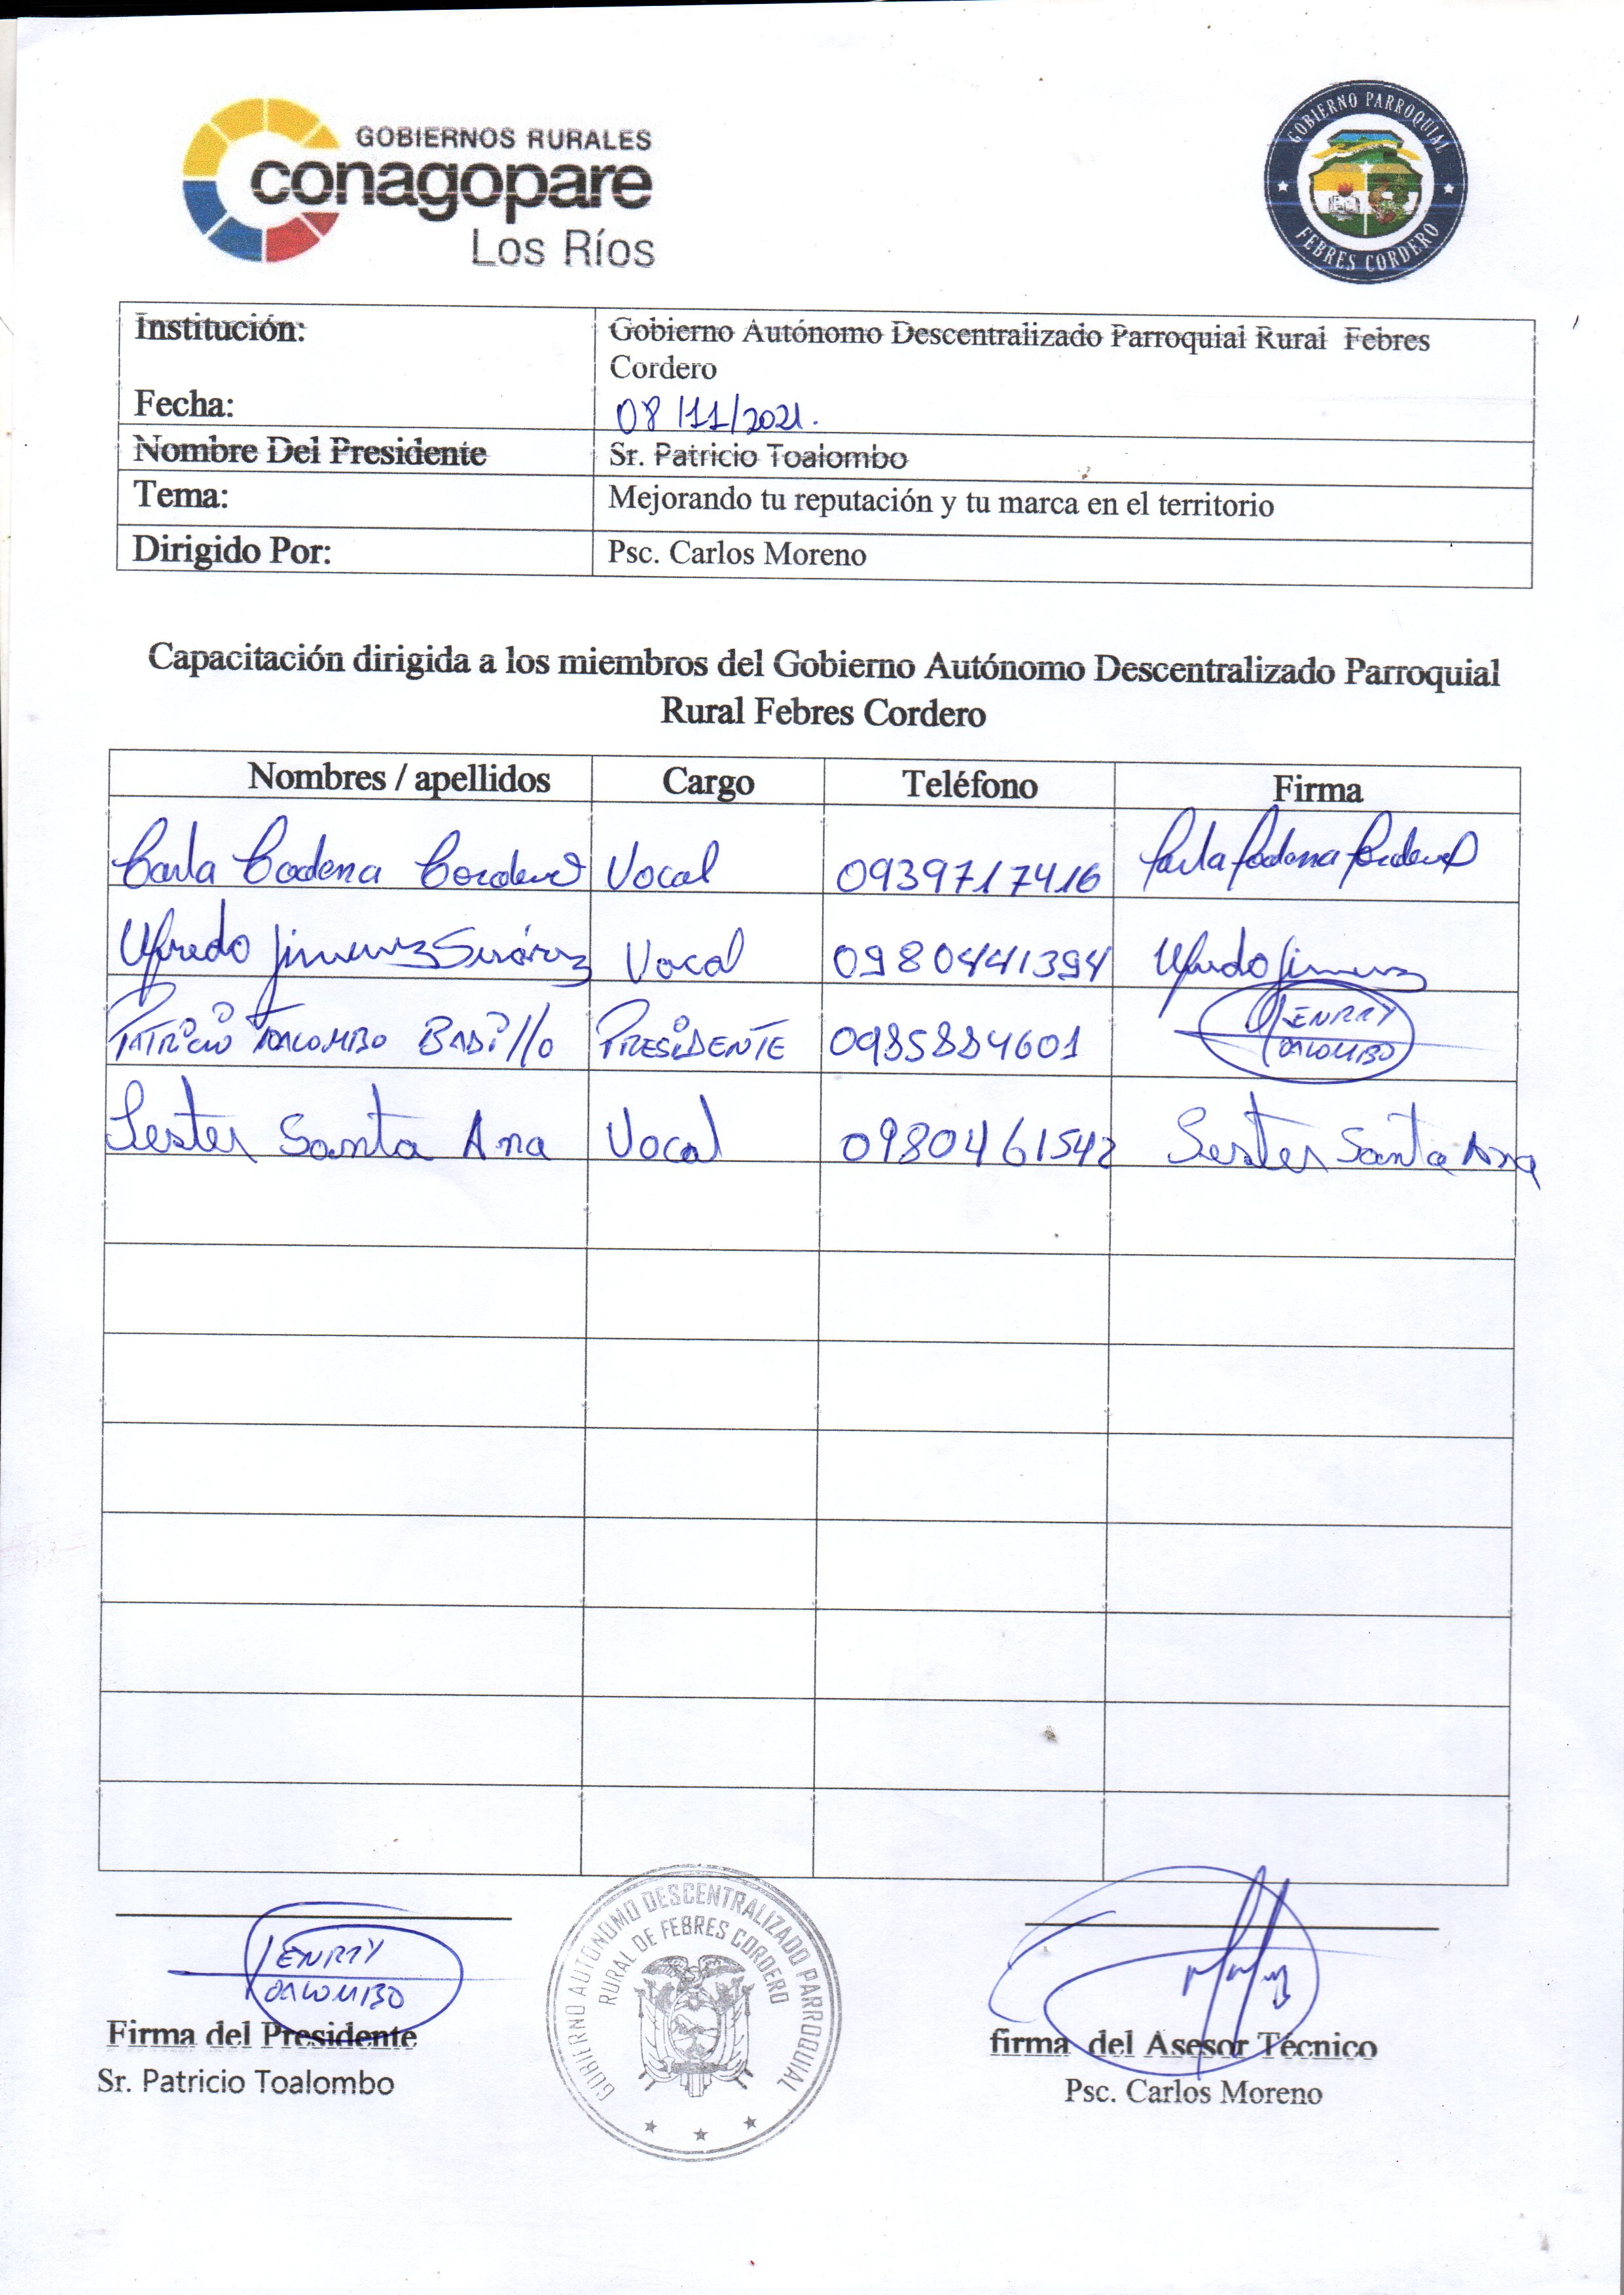 GOBIERNOS RURALES
conagopare
Los Ríos
GOBIERNO PARROQUIAL
FEBRES CORDERO
Institución: Gobierno Autónomo Descentralizado Parroquial Rural Febres
Cordero
Fecha: 08/11/2021.
Nombre Del Presidente Sr. Patricio Toalombo
Tema: Mejorando tu reputación y tu marca en el territorio
Dirigido Por: Psc. Carlos Moreno
Capacitación dirigida a los miembros del Gobierno Autónomo Descentralizado Parroquial
Rural Febres Cordero
Nombres / apellidos Cargo Teléfono Firma
Carla Cadena Cordero Vocal 0939717416 Carla Cadena Cordero
Ufredo Jimenez Suárez Vocal 0980441394 Ufredo Jimenez
PATRiCiO TOALOMBO BADillo PRESiDENTE 0985884601 HENRRY
TOALOMBO
Lester Santa Ana Vocal 0980461542 Lester Santa Ana
HENRRY
TOALOMBO
Firma del Presidente
Sr. Patricio Toalombo
GOBIERNO AUTONOMO DESCENTRALIZADO PARROQUIAL
RURAL DE FEBRES CORDERO
firma del Asesor Técnico
Psc. Carlos Moreno